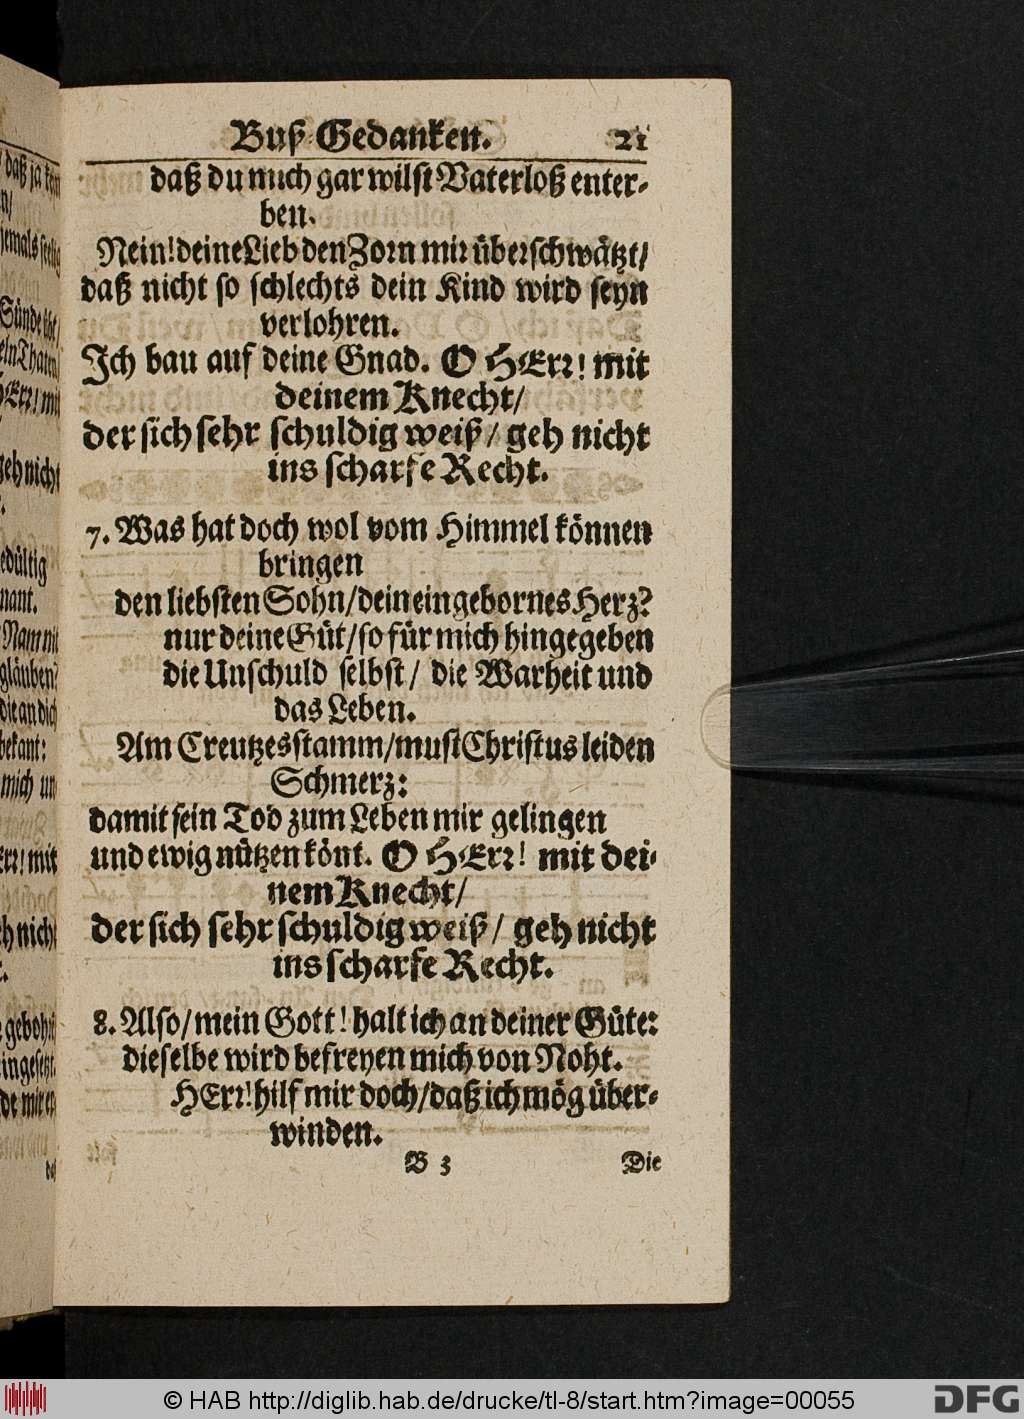 Buß Gedanken. 21
daß du mich gar wilst Vaterloß enter-
ben.
Nein! deine Lieb den Zorn mir überschwätzt/
daß nicht so schlechts dein Kind wird seyn
verlohren.
Ich bau auf deine Gnad. O HErr! mit
deinem Knecht/
der sich sehr schuldig weiß/ geh nicht
ins scharfe Recht.
7. Was hat doch wol vom Himmel können
bringen
den liebsten Sohn/ dein eingebornes Herz?
nur deine Güt/ so für mich hingegeben
die Unschuld selbst/ die Warheit und
das Leben.
Am Creutzesstamm/ must Christus leiden
Schmerz:
damit sein Tod zum Leben mir gelingen
und ewig nützen könt. O HErr! mit dei-
nem Knecht/
der sich sehr schuldig weiß/ geh nicht
ins scharfe Recht.
8. Also/ mein Gott! halt ich an deiner Güte:
dieselbe wird befreyen mich von Noht.
HErr! hilf mir doch/ daß ich mög über-
winden.
B 3 Die
© HAB http://diglib.hab.de/drucke/tl-8/start.htm?image=00055
DFG